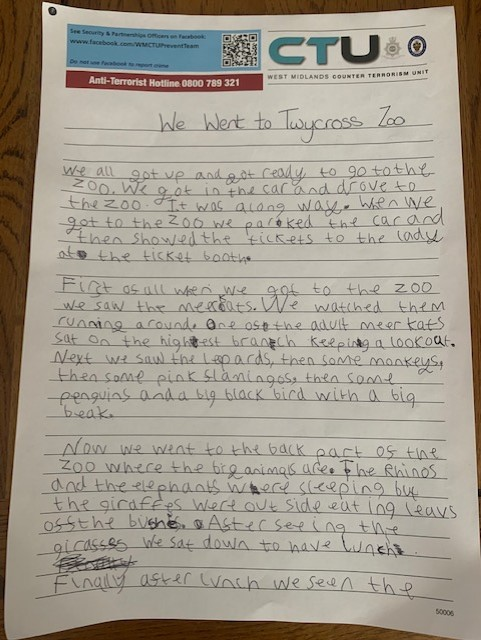 See Security & Partnerships Officers on Facebook.
www.facebook.com/WMCTUPreventTeam
Do not use Facebook to report crime
Anti-Terrorist Hotline 0800 789 321
CTU
WEST MIDLANDS COUNTER TERRORISM UNIT
We Went to Twycross Zoo
We all got up and got ready to go to the
zoo. We got in the car and drove to
the zoo. It was along way. When we
got to the zoo we parked the car and
then showed the tickets to the lady
at the ticket booth.
First of all when we got to the zoo
we saw the meerkats. We watched them
running around. One of the adult meer kats
sat on the highest branch keeping a lookout.
Next we saw the lepards, then some monkeys,
then some pink flamingos, then some
penguins and a big black bird with a big
beak.
Now we went to the back part of the
zoo where the big animals are. The Rhinos
and the elephants were sleeping but
the giraffes were out side eating leavs
off the bushe. After seeing the
giraffes we sat down to have lunch.
Finally after lunch we seen the
50006